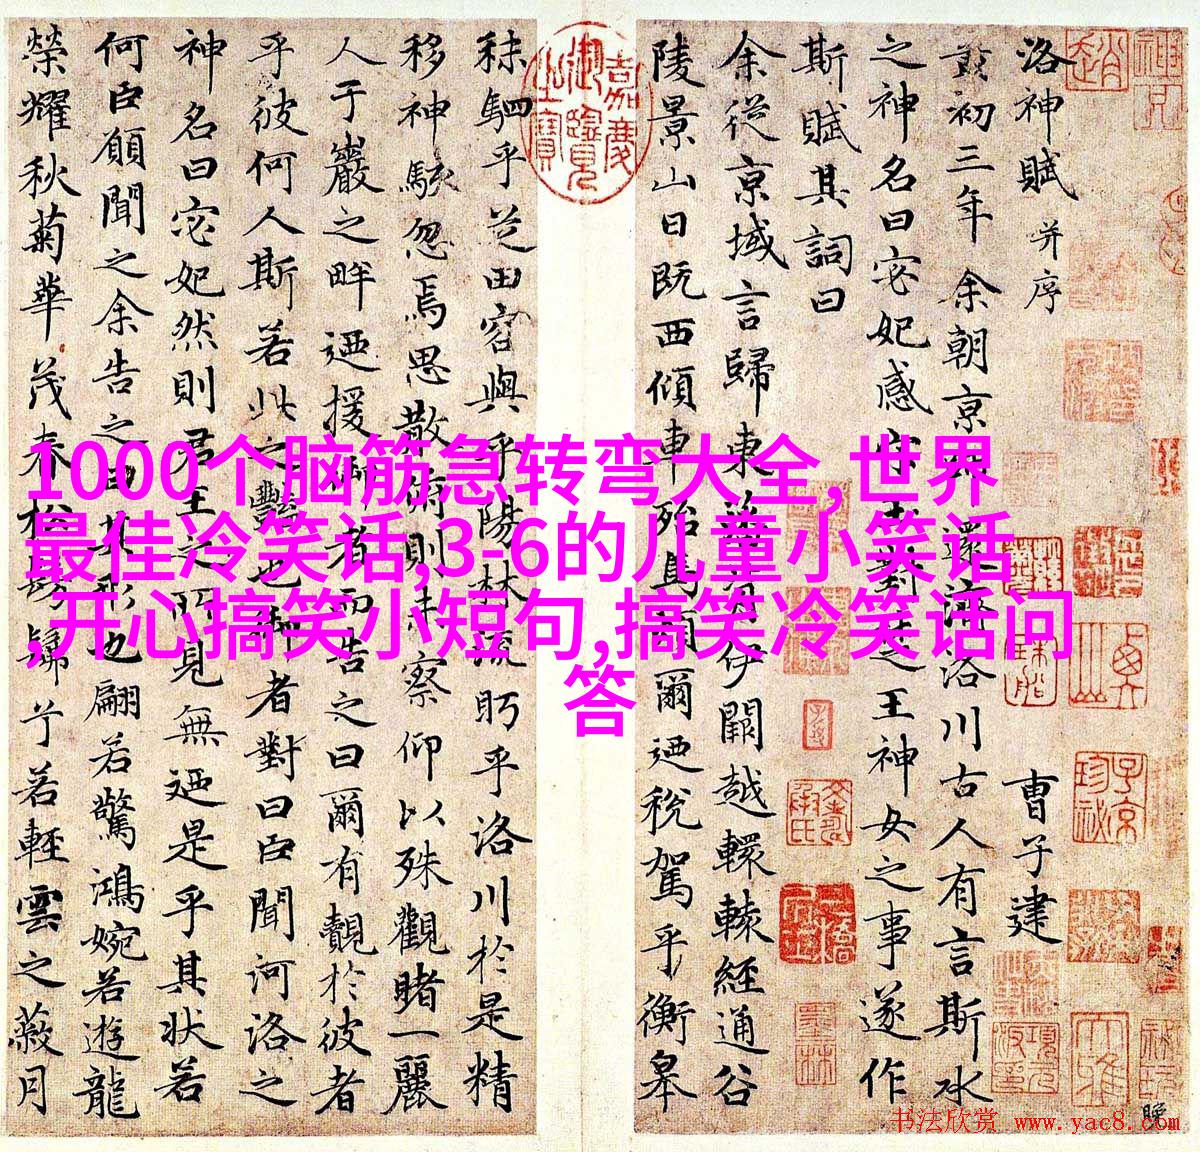 洛神賦 并序
曹子建
黃初三年余朝京師還濟洛川古人有言斯水
之神名曰宓妃感宋玉對楚王神女之事遂作
斯賦其詞曰
余從京域言歸東藩背伊闕越轘轅經通谷
陵景山日既西傾車殆馬煩爾迺稅駕乎衡皋
秣駟乎芝田容與乎陽林流眄乎洛川於是精
移神駭忽焉思散俯則未察仰以殊觀睹一麗
人于巖之畔迺援御者而告之曰爾有覿於彼者
乎彼何人斯若此之豔也御者對曰臣聞河洛之
神名曰宓妃然則君王之所見無迺是乎其状若
何臣願聞之余告之曰其形也翩若驚鴻婉若遊龍
榮耀秋菊華茂春松髣髴兮若輕雲之蔽月
嘉慶御覽之寶
1000个脑筋急转弯大全,世界
最佳冷笑话,3-6的儿童小笑话
,开心搞笑小短句,搞笑冷笑话问
答
晚
书法欣赏 www.yac8.com